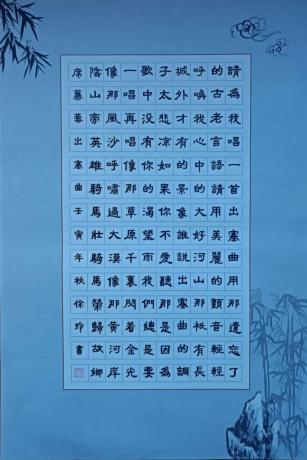 請為我唱一首出塞曲用那遺忘了
的古老言語請用美麗的顫音輕輕
呼喚我心中的大好河山那衹有長
城外才有的景象誰説出塞曲的調
子太悲涼如果你不愛聽那是因為
歌中没有你的渴望而我們總是要
一唱再唱像那草原千裏閃着金光
像那風沙呼嘯過大漠像那黄河岸
陰山旁英雄騎馬壯騎馬榮歸故鄉
席慕蓉出塞曲壬寅年秋徐玲書